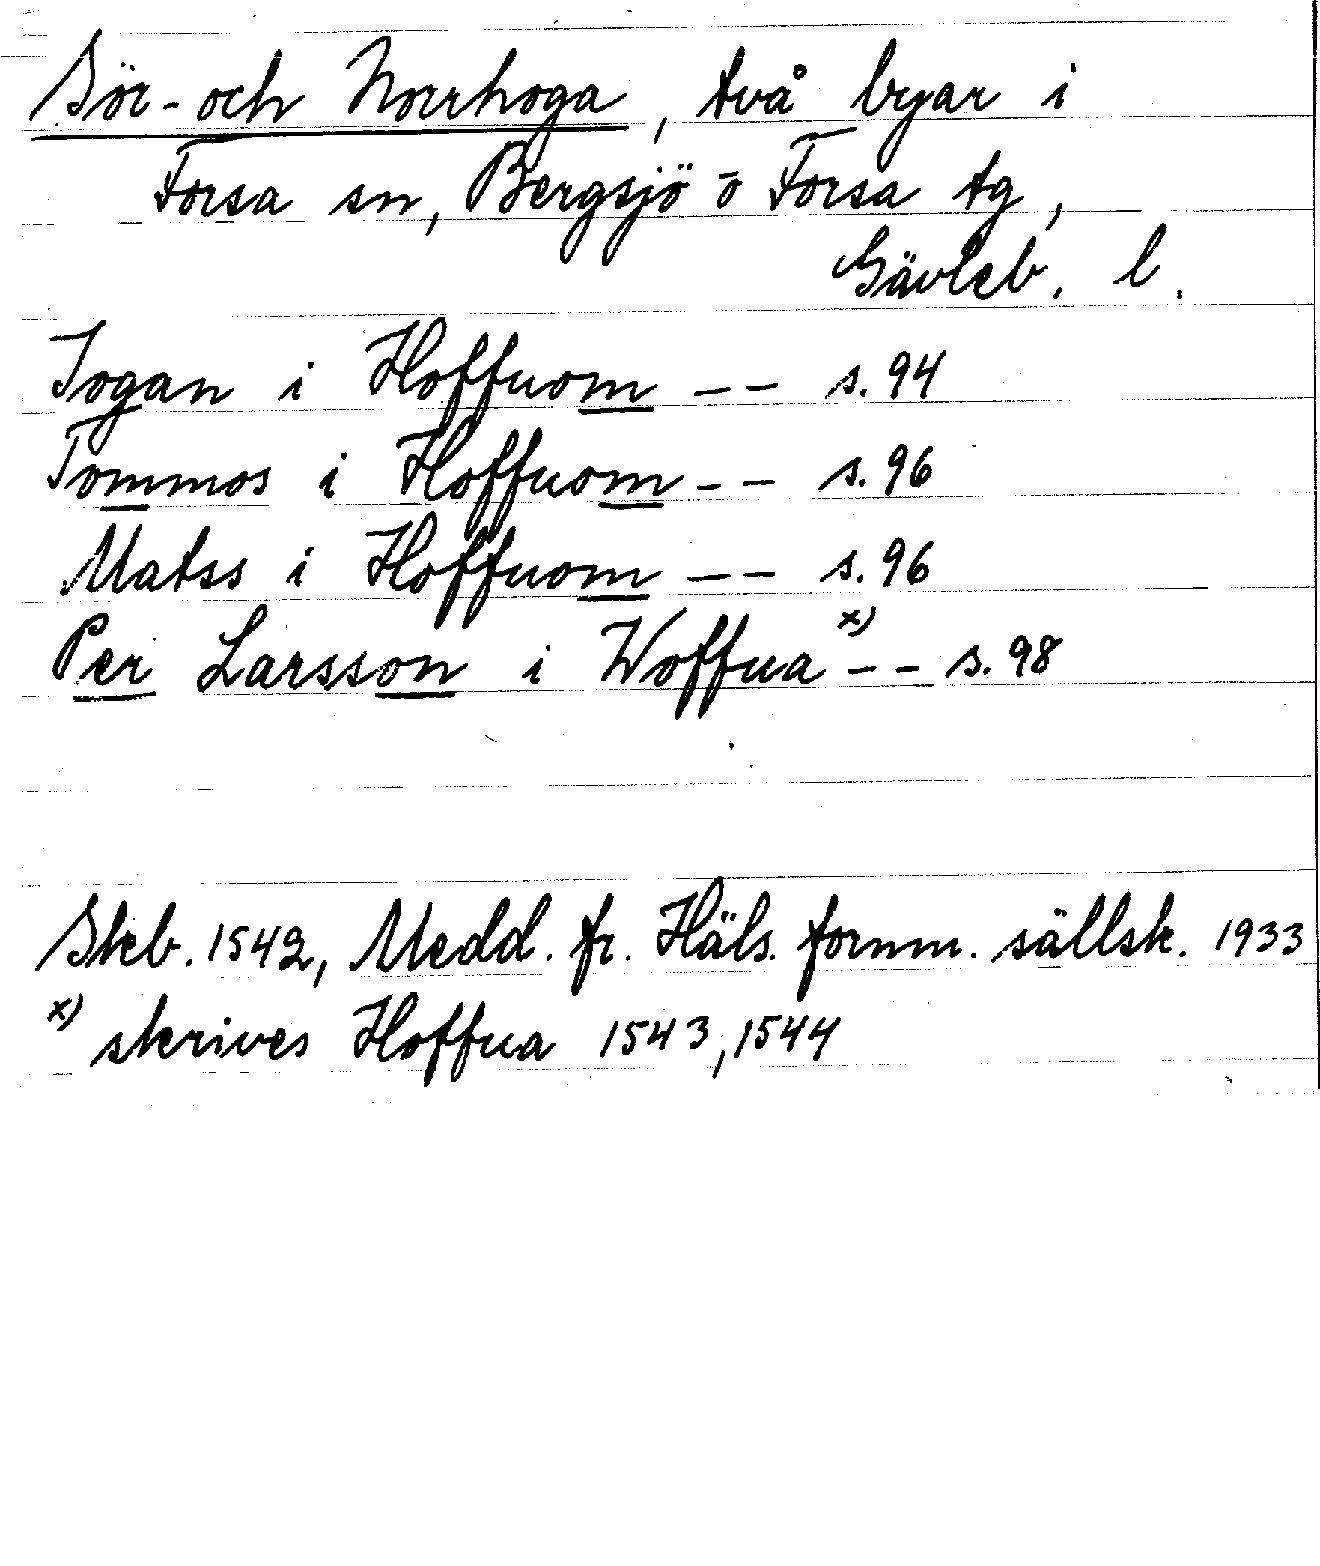 Sör- och Norrhoga, två byar i
Forsa sn, Bergsjö o Forsa tg,
Gävleb. l.
Jogan i Hoffuom -- s. 94
Tommos i Hoffuom -- s. 96
Matss i Hoffuom -- s. 96
Per Larsson i Woffua x) -- s. 98
Skb. 1542, Medd. fr. Häls. fornm. sällsk. 1933
x) skrives Hoffua 1543, 1544